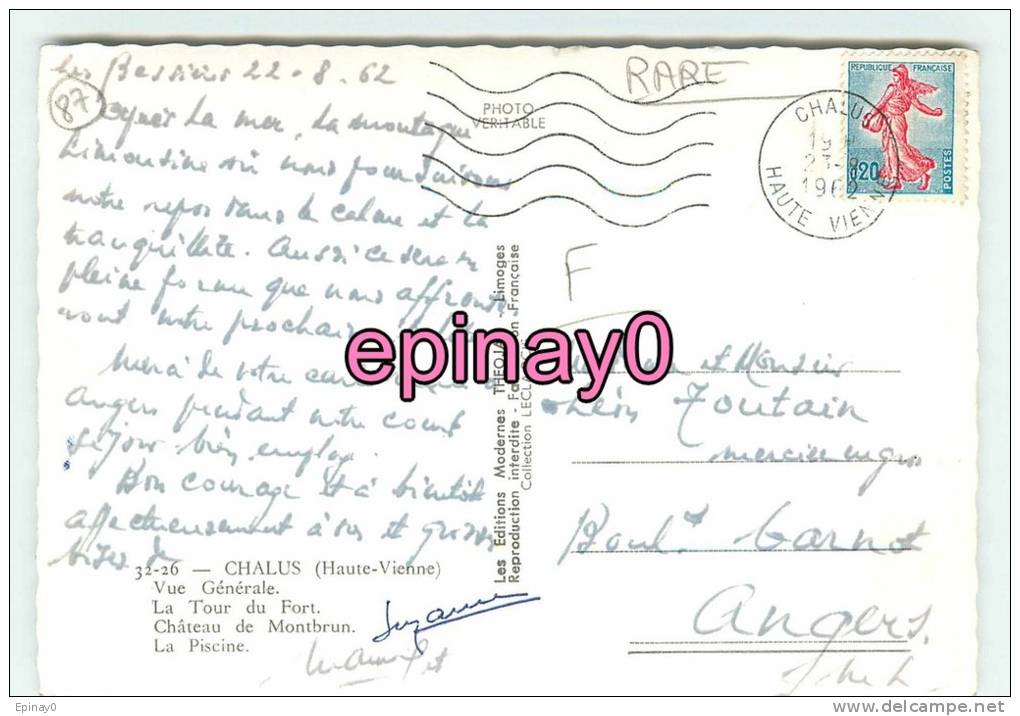 Les Bessins 22-8-62
87
RARE
PHOTO
VERITABLE
REPUBLIQUE FRANÇAISE
0,20
POSTES
CHALUS
23-8
1962
HAUTE VIENNE
la mer, la montagne
Limousine où nous poursuivons
notre repos dans le calme et la
tranquillité. Aussi ce sera en
pleine forme que nous affronte
ront notre prochain
Merci de votre carte
Angers pendant votre court
séjour bien employé.
Bon courage et à bientôt
affectueusement à vous et grosses
bises
F
epinay0
Les Editions Modernes THEOJA - Limoges
Reproduction interdite - Fa on Française
Collection LECLA
et Monsieur
Léon Toutain
mercier en gros
Boul.d Carnot
Angers.
32-26 — CHALUS (Haute-Vienne)
Vue Générale.
La Tour du Fort.
Château de Montbrun.
La Piscine.
Suzanne
M et L
Epinay0
delcampe.net